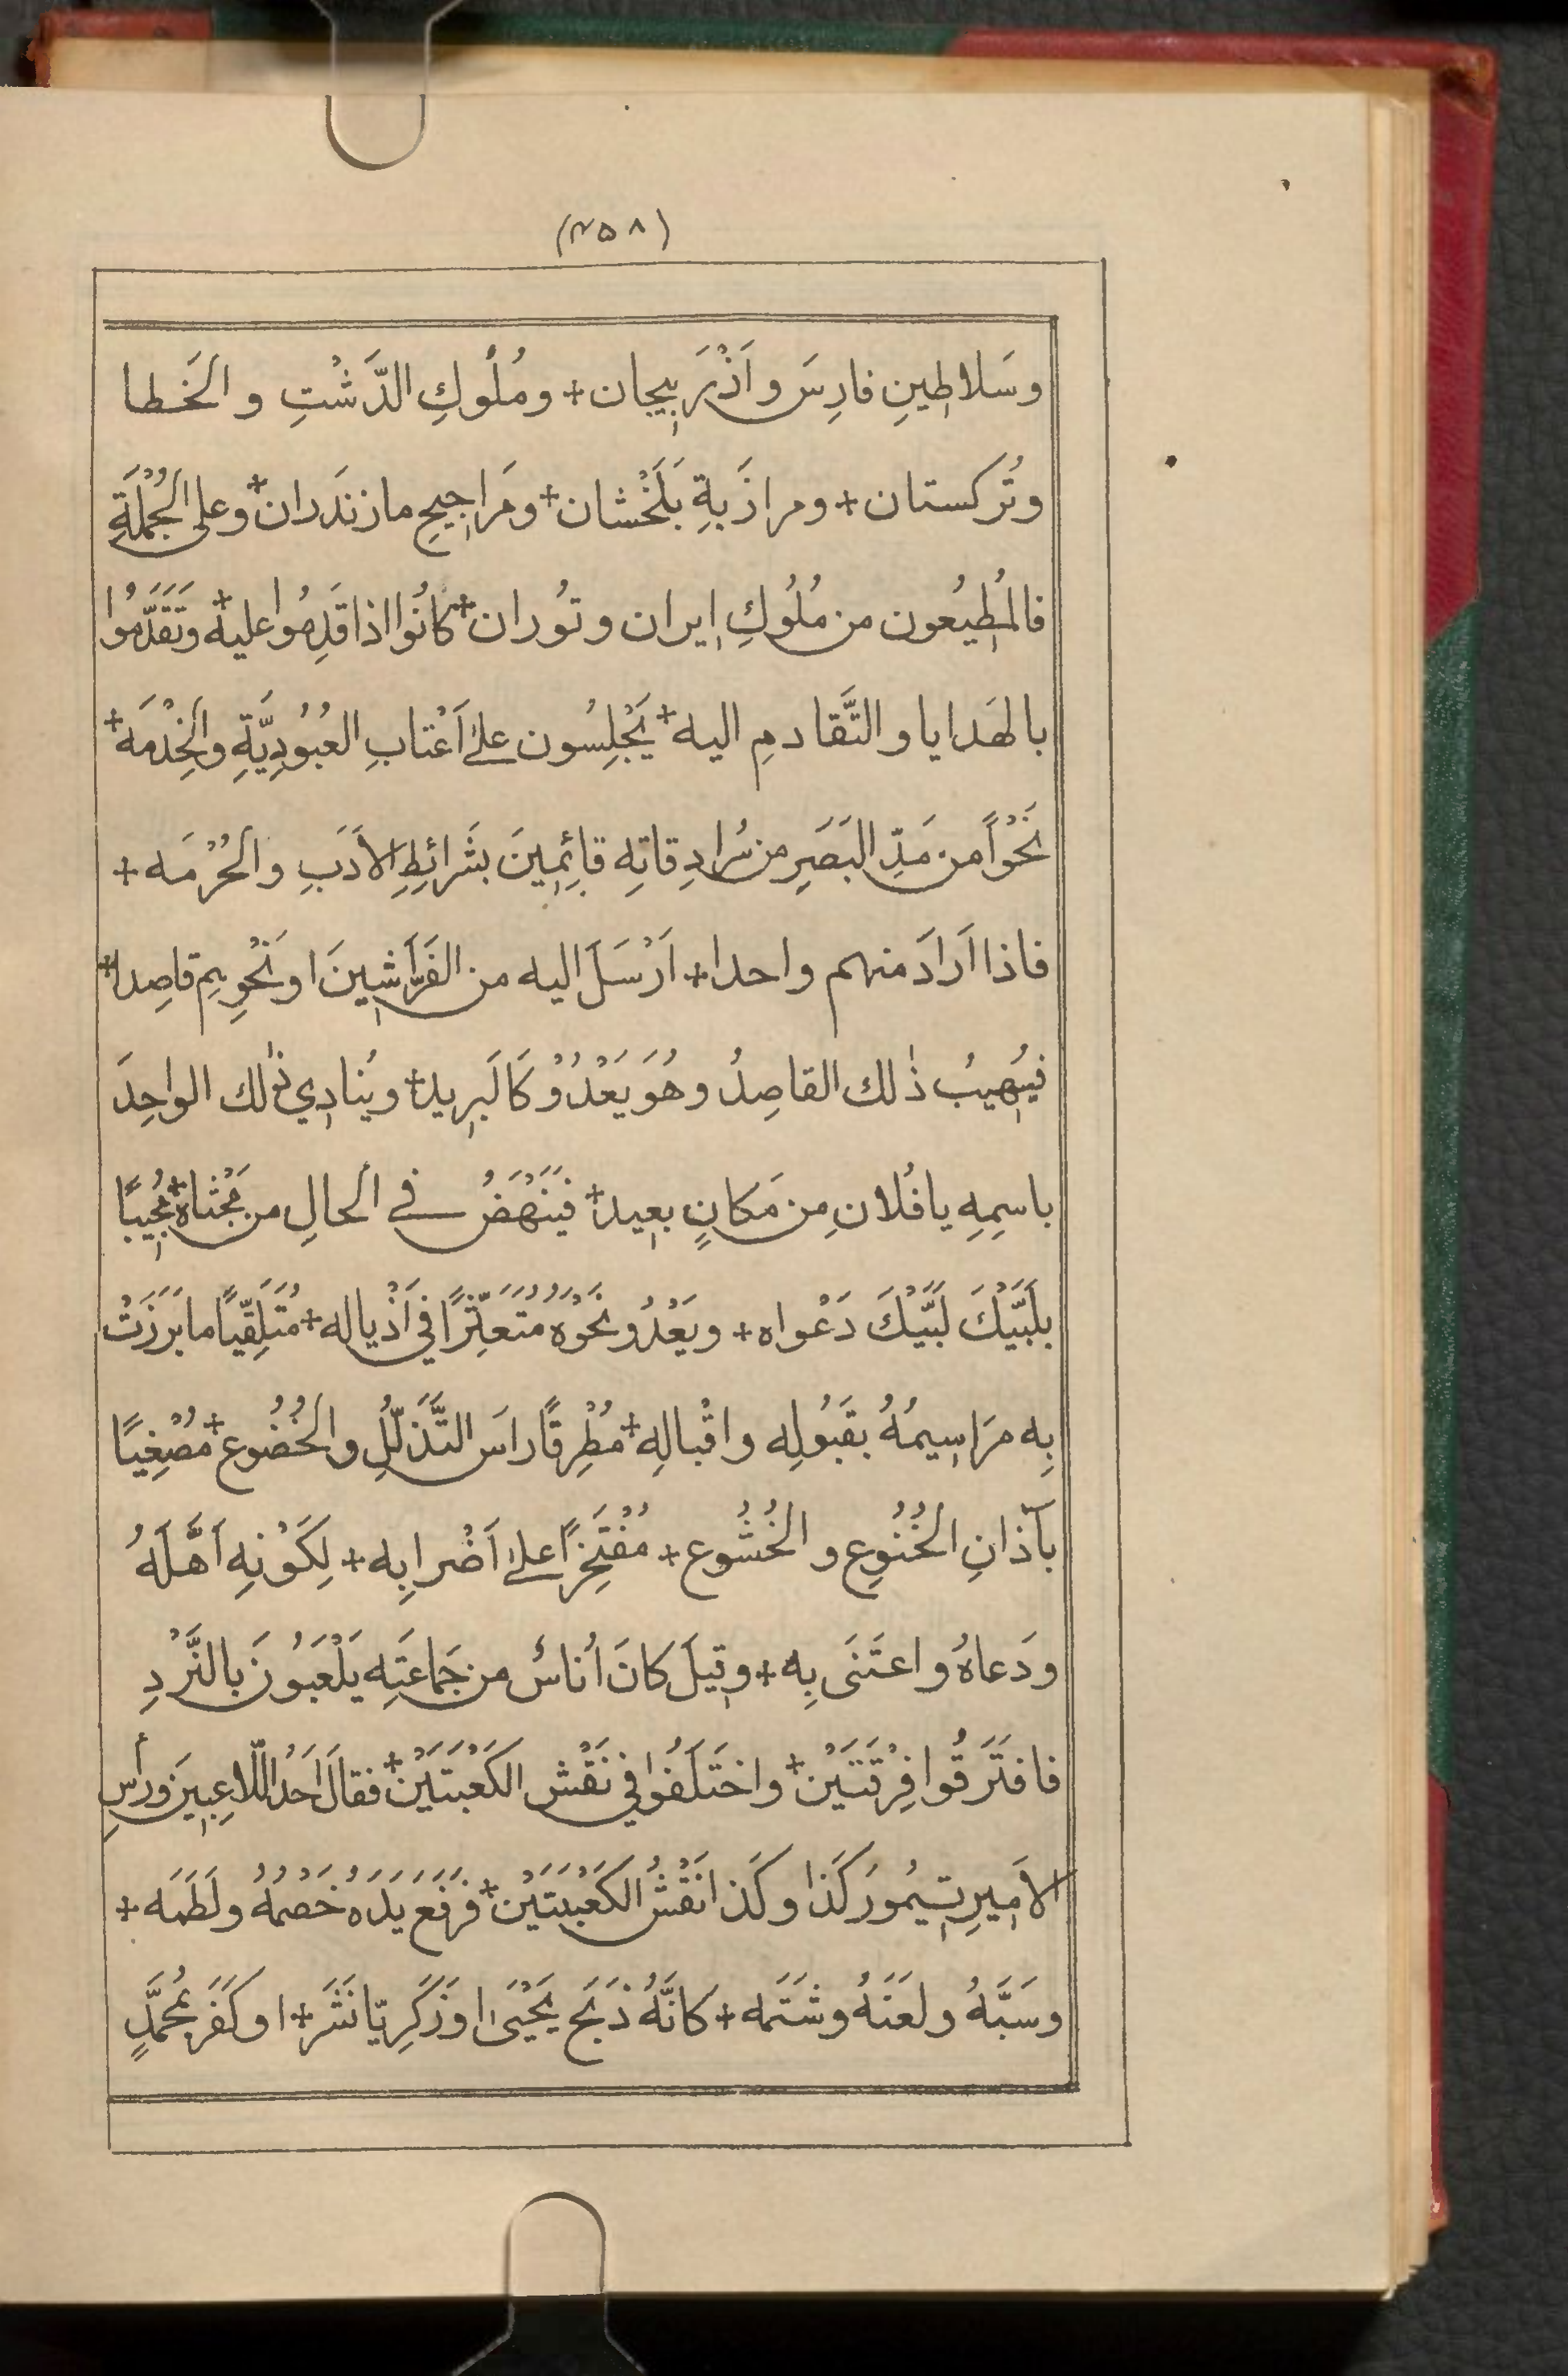 (٣٥٨)
وسَلاطِينِ فارِسَ واَذْرَبيجان + ومُلُوكِ الدَّشْتِ والخَطا
وتُركستان + ومرازَبةِ بَلَخْشان + ومَراجِيحِ مازنَدَران + وعلى الجُمْلَةِ
فالمُطِيعُون من مُلُوكِ ايران وتُوران + كانُوا اذا قَدِمُوا عليه + وتَقَدَّمُوا
بالهَدايا والتَّقادمِ اليه + يَجْلِسُون على اَعْتابِ العُبُودِيَّةِ والخِدْمَه +
نَحْواً من مَدِّ البَصَرِ من سُرادِقاتِهِ قائِمِينَ بشَرائطِ الاَدَبِ والحُرْمَه +
فاذا اَرادَ منهم واحدا + اَرْسَلَ اليه من الفَرّاشِينَ او نَحْوِهِم قاصِدا +
فيُهِيبُ ذٰلك القاصِدُ وهُوَ يَعْدُوْ كَالبَرِيد + ويُنادِي ذٰلك الواحِدَ
باسِمِهِ يا فُلان مِن مَكانٍ بعِيد + فيَنْهَضُ في الحالِ من مَجْثاه + مُجِيبًا
بلَبَّيْكَ لَبَّيْكَ دَعْواه + ويَعْدُو نَحْوَهُ مُتَعَثِّرًا في اَذْيالِه + مُتَلَقِّيًا ما بَرَزَتْ
بِه مرَاسِيمُهُ بقَبُولِه واقْبالِهِ + مُطْرِقًا راسَ التَّذَلُّلِ والخُضُوع + مُصْغِيًا
بآذانِ الخُنُوعِ والخُشُوع + مُفْتَخِرًا على اَضْرابِه + لِكَوْنِهِ اَهَّلَهُ
ودَعاهُ واعتَنَى بِه + وقِيلَ كانَ اُناسٌ من جَماعَتِه يَلْعَبُونَ بالنَّرْدِ
فافتَرَقُوا فِرْقَتَيْن + واختَلَفُوا في نَقْشِ الكَعْبَتَيْن + فقالَ اَحَدُ اللّاعِبِينَ ورأسِ
الاَمِيرِ تِيمُورَ كَذا وكَذا نَقْشُ الكَعْبَتَيْن + فرَفَعَ يَدَهُ خَصْمُهُ ولَطَمَه +
وسَبَّهُ ولَعَنَهُ وشَتَمَه + كانَّهُ ذَبَحَ يَحْيىٰ او زَكَرِيّا نَشَر + او كَفَرَ بمُحَمَّدٍ